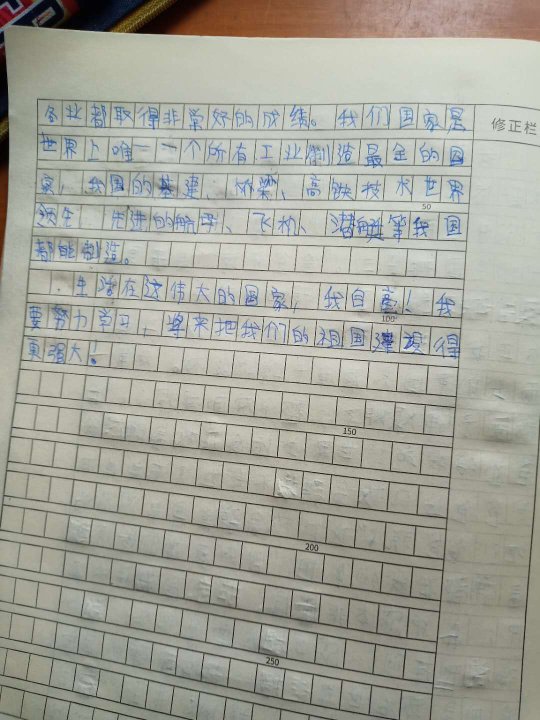 各业都取得非常好的成绩。我们国家是
修正栏
世界上唯一一个所有工业制造最全的国
家,我国的基建、桥梁、高铁技术世界
50
领先 先进的航母、飞机、潜艇等我国
都能制造。
生活在这伟大的国家,我自豪!我
100
要努力学习,将来把我们的祖国建设得
更强大!
150
200
250